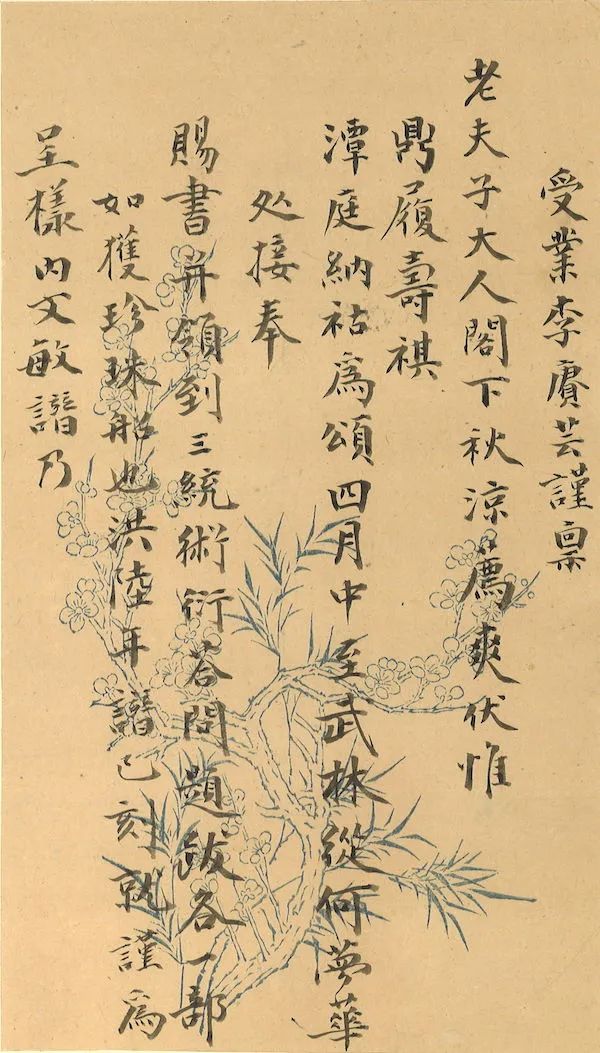 受業李賡芸謹稟
老夫子大人閣下秋涼薦爽伏惟
鼎履壽祺
潭庭納祜爲頌四月中至武林從何夢華
処接奉
賜書并領到三統術衍荅問題跋各一部
如獲珍珠船也洪陸年譜已刻就謹爲
呈樣內文敏譜乃